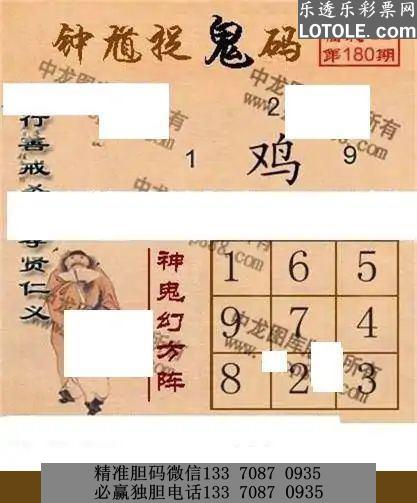 乐透乐彩票网
LOTOLE.COM
钟馗捉鬼码
第180期
行善戒
尊贤仁义
2
1 鸡 9
神鬼幻方阵
1 6 5
9 7 4
8 2 3
中龙图库
所有
精准胆码微信133 7087 0935
必赢独胆电话133 7087 0935